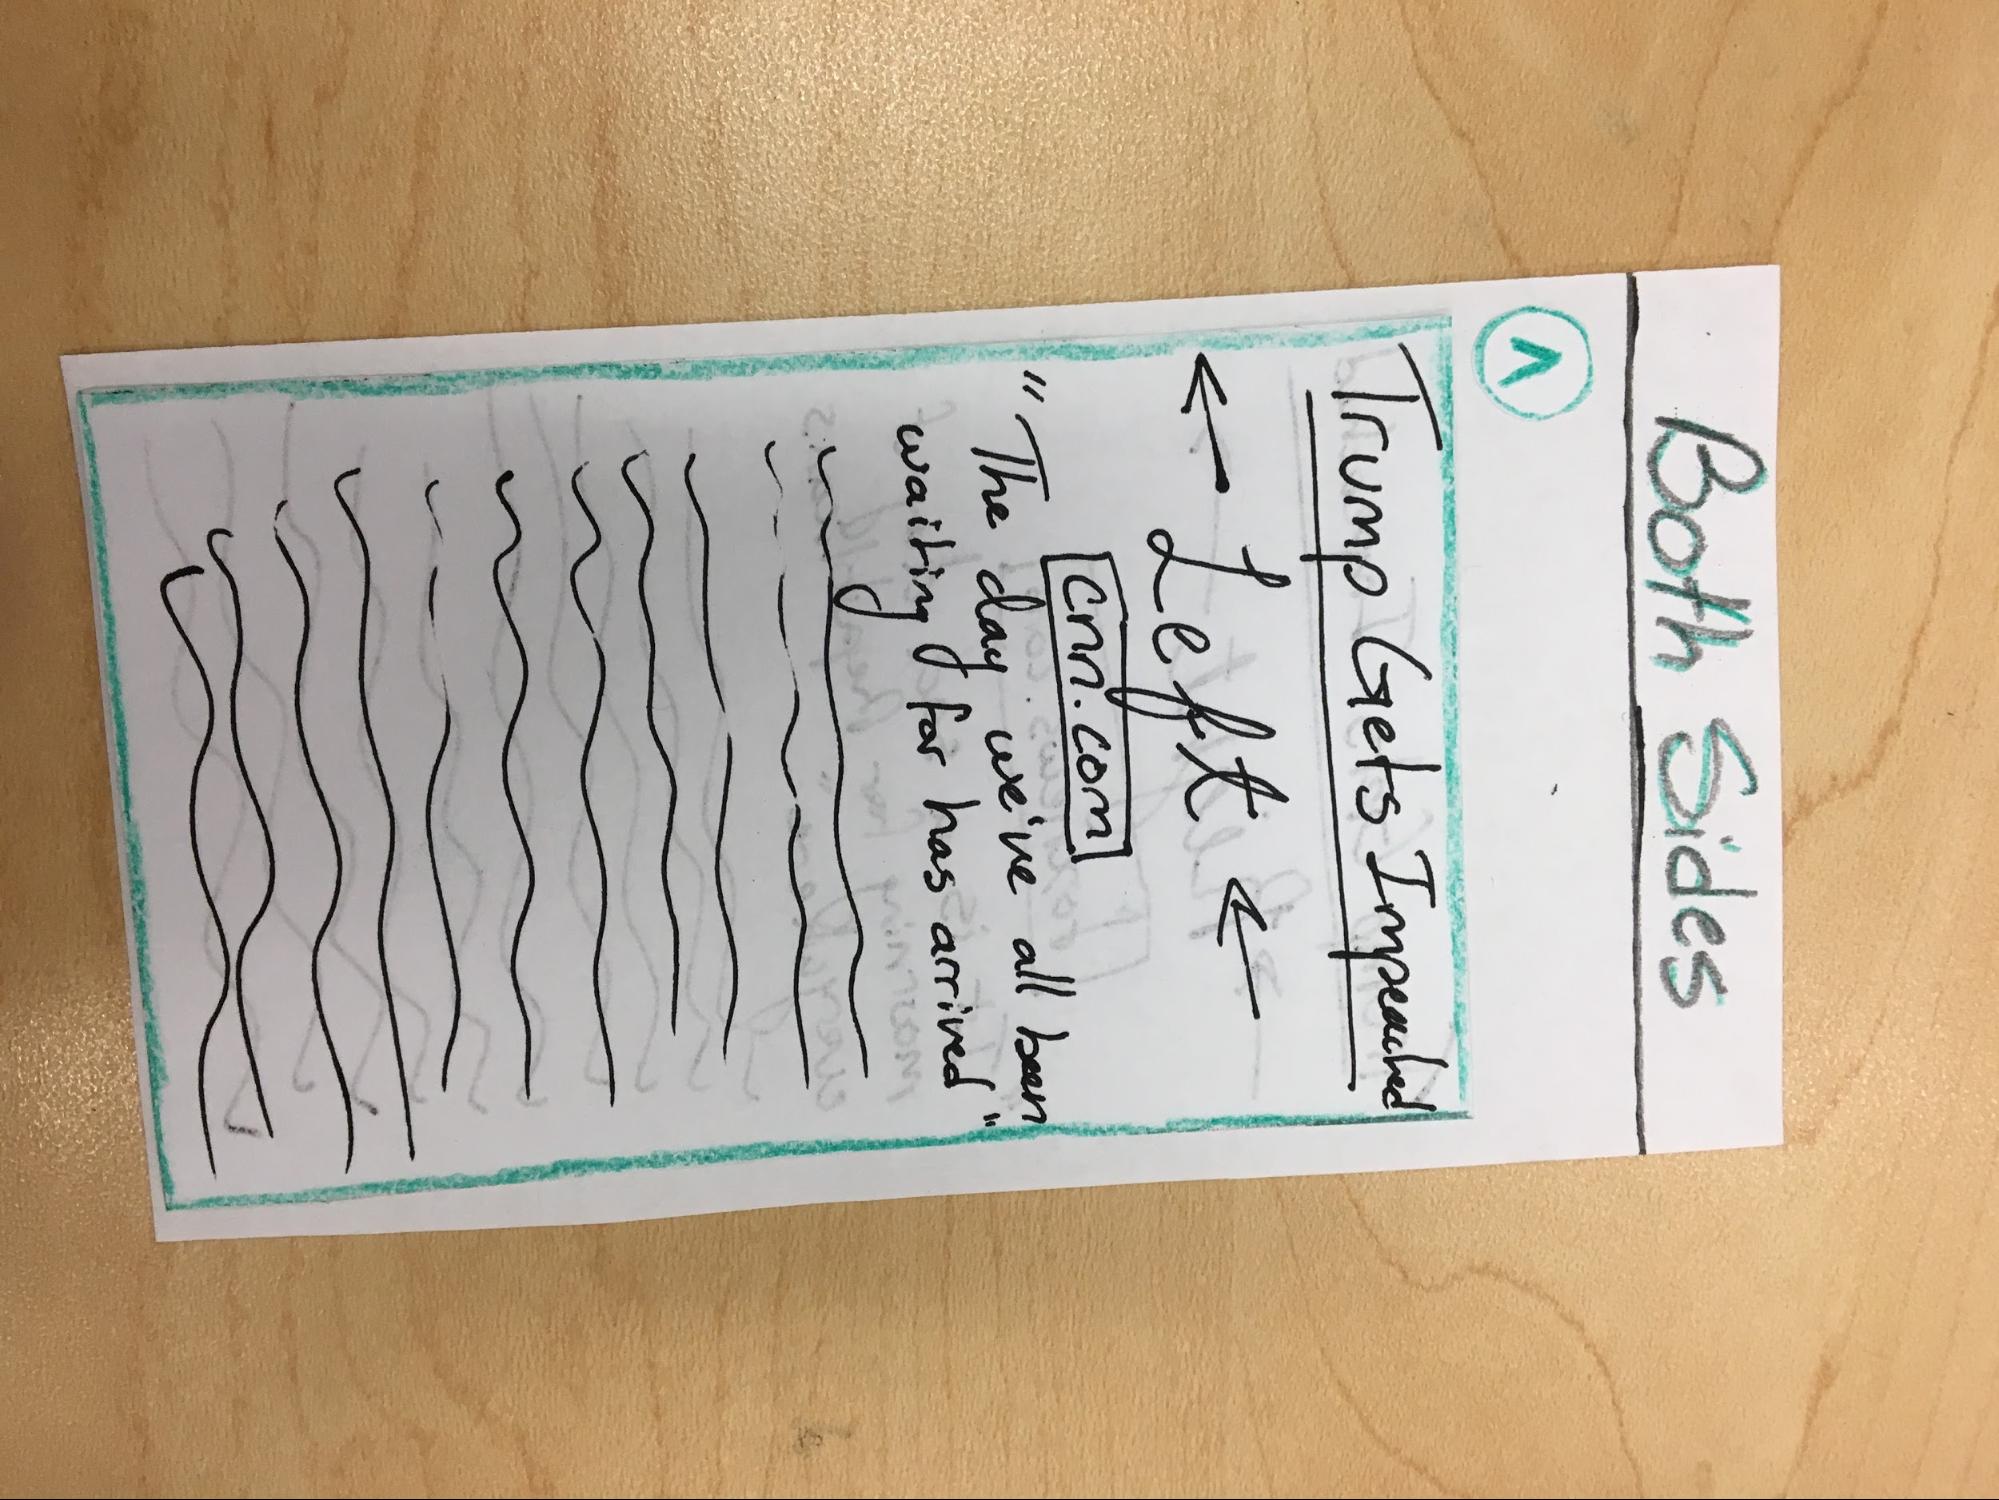 Both Sides
Trump Gets Impeached
Left
cnn.com
"The day we've all been
waiting for has arrived"